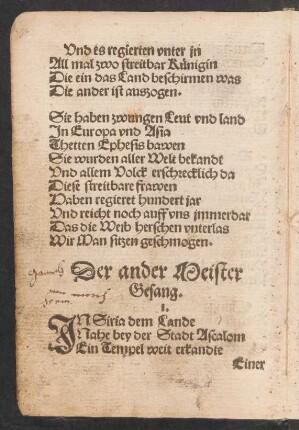 Vnd es regierten vnter jn
All mal zwo streitbar Künigin
Die ein das Land beschirmen was
Die ander ist auszogen.
Sie haben zwungen Leut vnd land
In Europa vnd Asia
Thetten Ephesis bawen
Sie wurden aller Welt bekandt
Vnd allem Volck erschrecklich da
Diese streitbare frawen
Haben regieret hundert jar
Vnd reicht noch auff vns jmmerdar
Das die Weib herschen vnterlas
Wir Man sitzen geschmogen.
Der ander Meister
Gesang.
1.
IN Siria dem Lande
Nahe bey der Stadt Ascalom
Ein Tempel weit erkandte
Einer